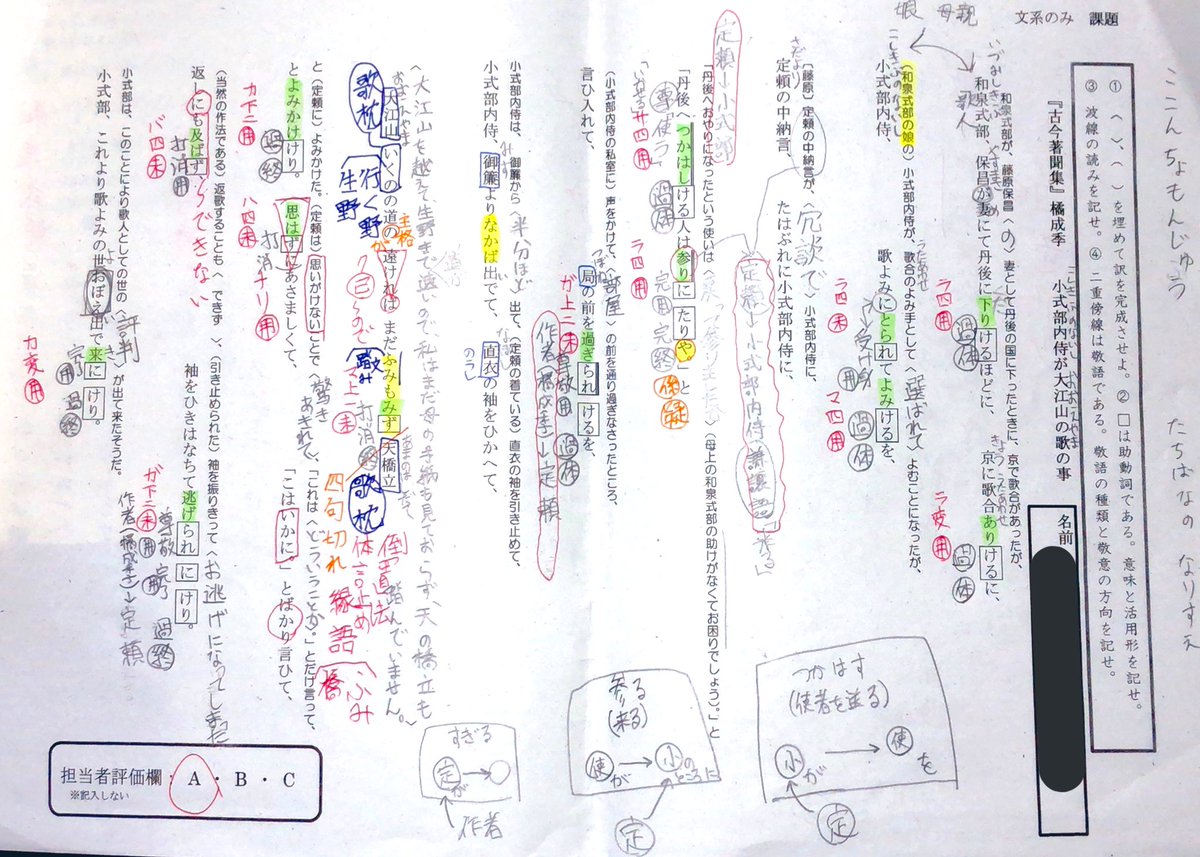 文系のみ 課題
① 〈 〉、( )を埋めて訳を完成させよ。② □は助動詞である。意味と活用形を記せ。
③ 波線の読みを記せ。④ 二重傍線は敬語である。敬語の種類と敬意の方向を記せ。
ここんちょもんじゅう
たちばなのなりすえ
『古今著聞集』 橘成季
小式部内侍が大江山の歌の事
名前
娘 母親
和泉式部が、藤原保昌〈の〉妻として丹後の国に下ったときに、京で歌合があったが、
いづみしきぶ
歌人
和泉式部、保昌が妻にて丹後に下りけるほどに、京に歌合ありけるに、
ラ四用 過体
ラ変用 過体
(和泉式部の娘の)小式部内侍が、歌合のよみ手として〈選ばれて〉よむことになったが、
小式部内侍、歌よみにとられてよみけるを、
ラ四未 受用
マ四用 過体
(藤原)定頼の中納言が、〈冗談で〉小式部内侍に、
さだより
定頼の中納言、たはぶれに小式部内侍に、
定頼→小式部
定頼→小式部内侍(謙譲語)
「丹後へおやりになったという使いは
(母上の和泉式部の助けがなくてお困りでしょう)。」と
「丹後へつかはしける人は参りにたりや」と
過体
ラ四用 完用 完終 係疑
(小式部内侍の私室に)声をかけて、〈部屋〉の前を通り過ぎなさったところ、
つぼね
言ひ入れて、局の前を過ぎられけるを、
ガ上二未 尊敬用 過体
作者(橘成季)→定頼
小式部内侍は、御簾から〈半分ほど〉出て、(定頼の着ている)直衣の袖を引き止めて、
みす
小式部内侍、御簾よりなかば出でて、直衣の袖をひかへて、
のうし
〈大江山を越え、生野を通って遠いので、私はまだ母の手紙も見ておらず、天の橋立も踏んでいません。〉
大江山いくのの道の遠ければまだふみもみず天橋立
歌枕
行く野
生野
主格
が
ので
踏み
マ上一未
打消
あまのはしだて
歌枕
四句切れ
倒置法
体言止め
縁語
ふみ
橋
と(定頼に)よみかけた。(定頼は)〈思いがけない〉ことで〈驚きあきれて〉、「これは〈どういうことか〉。」とだけ言って、
とよみかけけり。思はずにあさましくて、「こはいかに」とばかり言ひて、
カ下二用 過終
ハ四未 打消
ナリ用
(当然の作法である)返歌することも〈できず〉、(引き止められた)袖を振りきって〈お逃げになってしまった〉
返しにも及ばず、袖をひきはなちて逃げられにけり。
バ四未 打消用
〜できない
ガ下二未 尊敬用 完用 過終
作者(橘成季)→定頼
小式部は、このことにより歌人としての世の〈評判〉が出て来たそうだ。
小式部、これより歌よみの世おぼえ出で来にけり。
カ変用 完用 過終
つかはす
(使者を送る)
小が→使を
定
参る
(来る)
使が→小のところに
定
すぎる
定が→○
作者
担当者評価欄・A・B・C
※記入しない